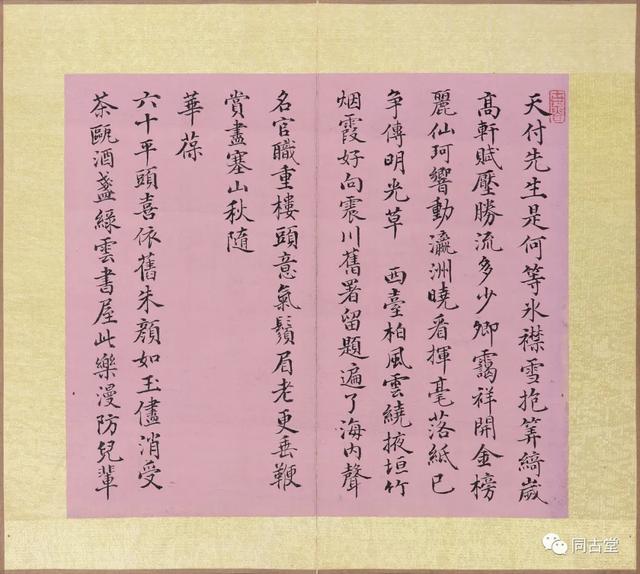 天付先生是何等氷襟雪抱算綺歲
高軒賦壓勝流多少卿靄祥開金榜
麗仙珂響動瀛洲曉看揮毫落紙已
争傳明光草　西臺柏風雲繞掖垣竹
烟霞好向震川舊署留題遍了海内聲
名官職重樓頭意氣鬚眉老更垂鞭
賞盡塞山秋隨
華葆
六十平頭喜依舊朱顔如玉儘消受
茶甌酒盞緑雲書屋此樂漫防兒輩
同古堂